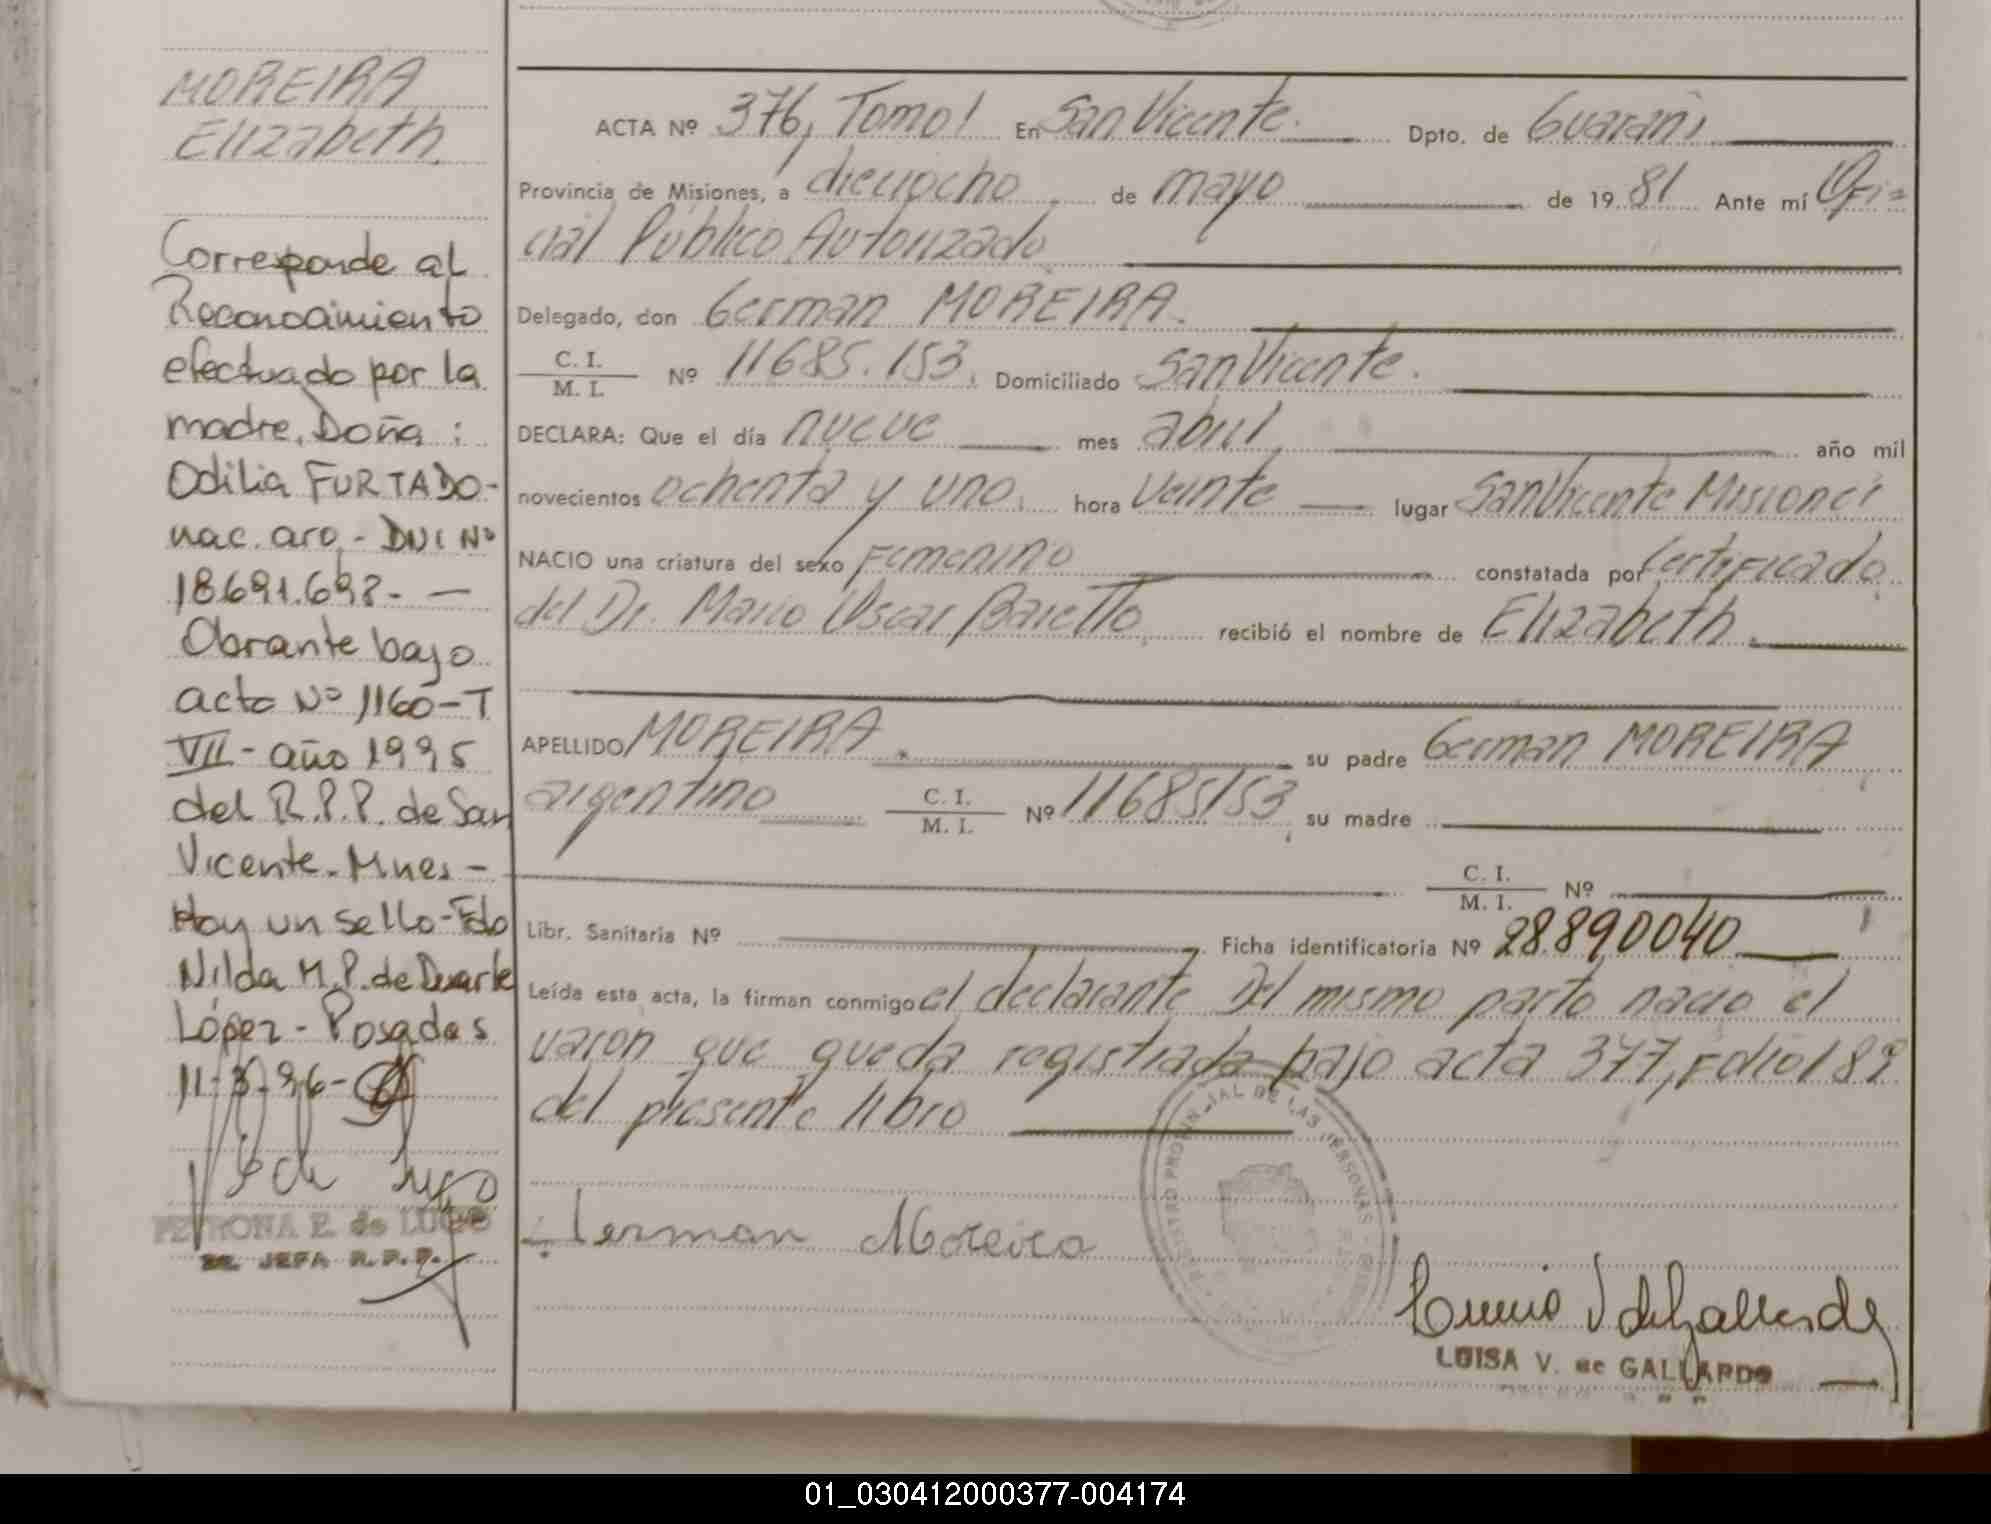 MOREIRA
Elizabeth.
Corresponde al
Reconocimiento
efectuado por la
madre, Doña:
Odilia FURTADO-
nac. arg.- DNI Nº
18.691.698.- —
Obrante bajo
acta Nº 1160-T
VII- año 1995
del R.P.P. de San
Vicente. Mnes-
Hay un sello- Fdo
Nilda M.P. de Duarte
López - Posadas
11-3-96-
PETRONA E. de LUGO
JEFA R.P.P.
ACTA Nº 376, Tomo I En San Vicente. Dpto. de Guaraní
Provincia de Misiones, a dieciocho de mayo de 1981 Ante mí Ofi=
cial Público Autorizado
Delegado, don German MOREIRA.
C. I.
M. I. Nº 11685.153, Domiciliado San Vicente.
DECLARA: Que el día nueve mes abril año mil
novecientos ochenta y uno, hora veinte lugar San Vicente Misiones
NACIO una criatura del sexo Femenino constatada por Certificado
del Dr. Mario Oscar Baretto, recibió el nombre de Elizabeth.
APELLIDO MOREIRA su padre German MOREIRA
argentino C. I.
M. I. Nº 11685153, su madre
C. I.
M. I. Nº
Libr. Sanitaria Nº Ficha identificatoria Nº 28.890040
Leída esta acta, la firman conmigo el declarante Del mismo parto nacio el
varon que queda registrada bajo acta 377, Folio 189
del presente libro
REGISTRO PROVINCIAL DE LAS PERSONAS
German Moreira
LUISA V. de GALLARDO
01_030412000377-004174